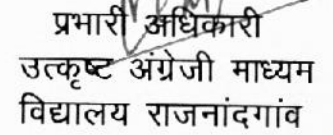 प्रभारी अधिकारी
उत्कृष्ट अंग्रेजी माध्यम
विद्यालय राजनांदगांव